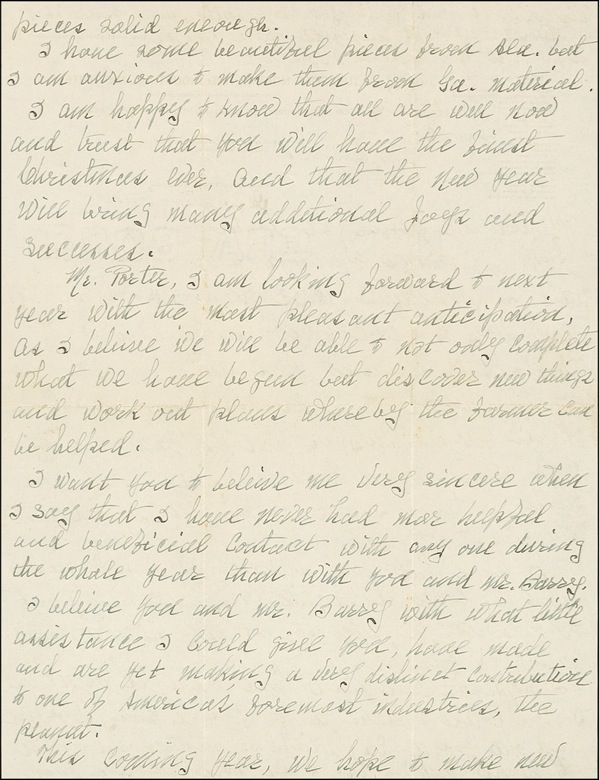 pieces solid enough.
I have some beautiful pieces from Ala. but
I am anxious to make them from Ga. material.
I am happy to know that all are well now
and trust that you will have the finest
Christmas ever, and that the new year
will bring many additional joys and
successes.
Mr. Porter, I am looking forward to next
year with the most pleasant anticipation,
as I beleive we will be able to not only complete
what we have begun but discover new things
and work out plans whereby the farmer can
be helped.
I want you to beleive me very sincere when
I say that I have never had mor helpful
and beneficial contact with any one during
the whole year than with you and Mr. Barry.
I beleive you and Mr. Barry with what little
assistance I could give you, have made
and are yet making a very distinct contribution
to one of Americas, foremost industries, the
peanut.
This coming year, we hope to make new